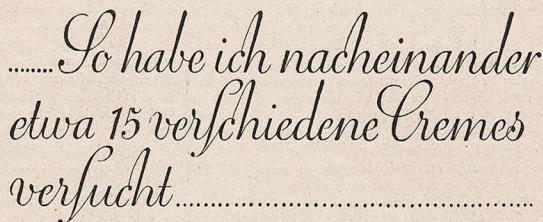 ........So habe ich nacheinander
etwa 15 verschiedene Cremes
versucht.............................................